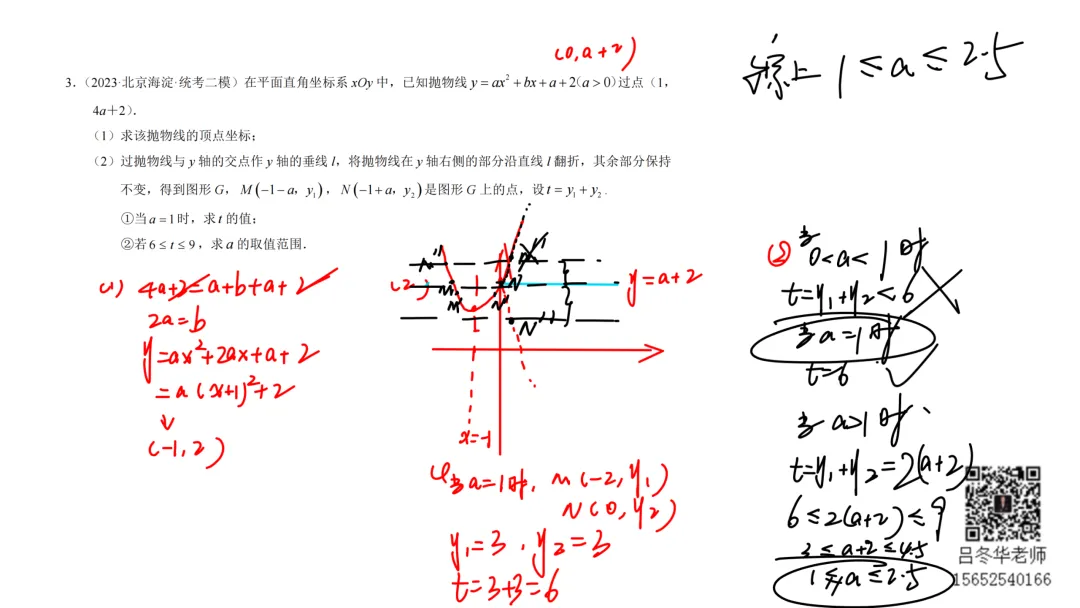 (0, a+2)
3.（2023·北京海淀·统考二模）在平面直角坐标系 xOy 中，已知抛物线 y = ax² + bx + a + 2(a > 0) 过点（1，
4a＋2）.
（1）求该抛物线的顶点坐标；
（2）过抛物线与 y 轴的交点作 y 轴的垂线 l，将抛物线在 y 轴右侧的部分沿直线 l 翻折，其余部分保持
不变，得到图形 G，M(−1−a，y₁)，N(−1+a，y₂)是图形 G 上的点，设 t = y₁ + y₂ .
①当 a = 1 时，求 t 的值；
②若 6 ≤ t ≤ 9，求 a 的取值范围.
(1) 4a+2=a+b+a+2
2a=b
y=ax²+2ax+a+2
=a(x+1)²+2
(-1,2)
y=a+2
x=-1
当a=1时, M(-2, y₁)
N(0, y₂)
y₁=3, y₂=3
t=3+3=6
综上 1≤a≤2.5
② 当 0<a<1时
t=y₁+y₂≤6
当a=1时
t=6
当a>1时,
t=y₁+y₂=2(a+2)
6≤2(a+2)≤9
3≤a+2≤4.5
1≤a≤2.5
吕冬华老师
15652540166